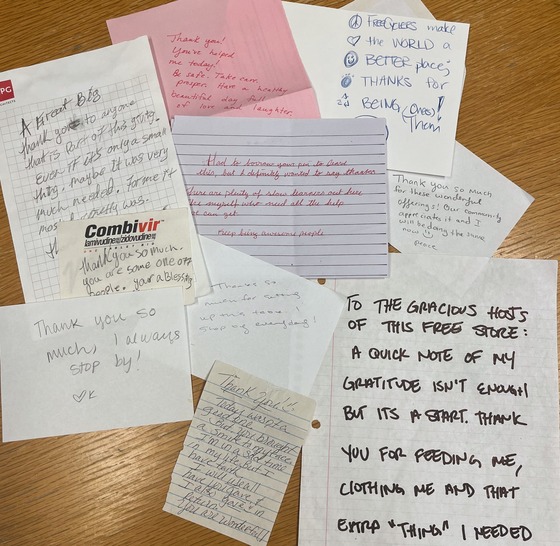 Thank you!
You've helped
me today!
Be safe. Take care.
Prepare. Have a healthy
beautiful day full
of love and laughter,
FREECYCLERS make
♡ the WORLD a
BETTER place;
THANKS for
BEING (ones)!
Them
PG
A Great Big
thank you to anyone
that is part of this giving.
Even if it's only a small
thing, maybe it was very
much needed. For me it
most
was.
Had to borrow your pen to leave
this, but I definitely wanted to say thanks.
There are plenty of slow learners out here
like myself who need all the help
we can get
Keep being awesome people
Thank you so much
for these wonderful
offerings! Our community
appreciates it and I
will be doing the same
now ☺
peace
Combivir
lamivudine/zidovudine
Thank you so much.
you are some one off
people. your a Blessing
Thank you so
much, I always
stop by!
♡K
Thanks so
much for
up
I
stop by everyday!
Thank you!!
Today was a
But you brought
a smile to my face
I'm in a slow time
in my life but I
have faith
I will use all
I have you gave &
I also gave in
return.
You are Wonderful!
TO THE GRACIOUS HOSTS
OF THIS FREE STORE:
A QUICK NOTE OF MY
GRATITUDE ISN'T ENOUGH
BUT ITS A START. THANK
YOU FOR FEEDING ME,
CLOTHING ME AND THAT
EXTRA "THING" I NEEDED